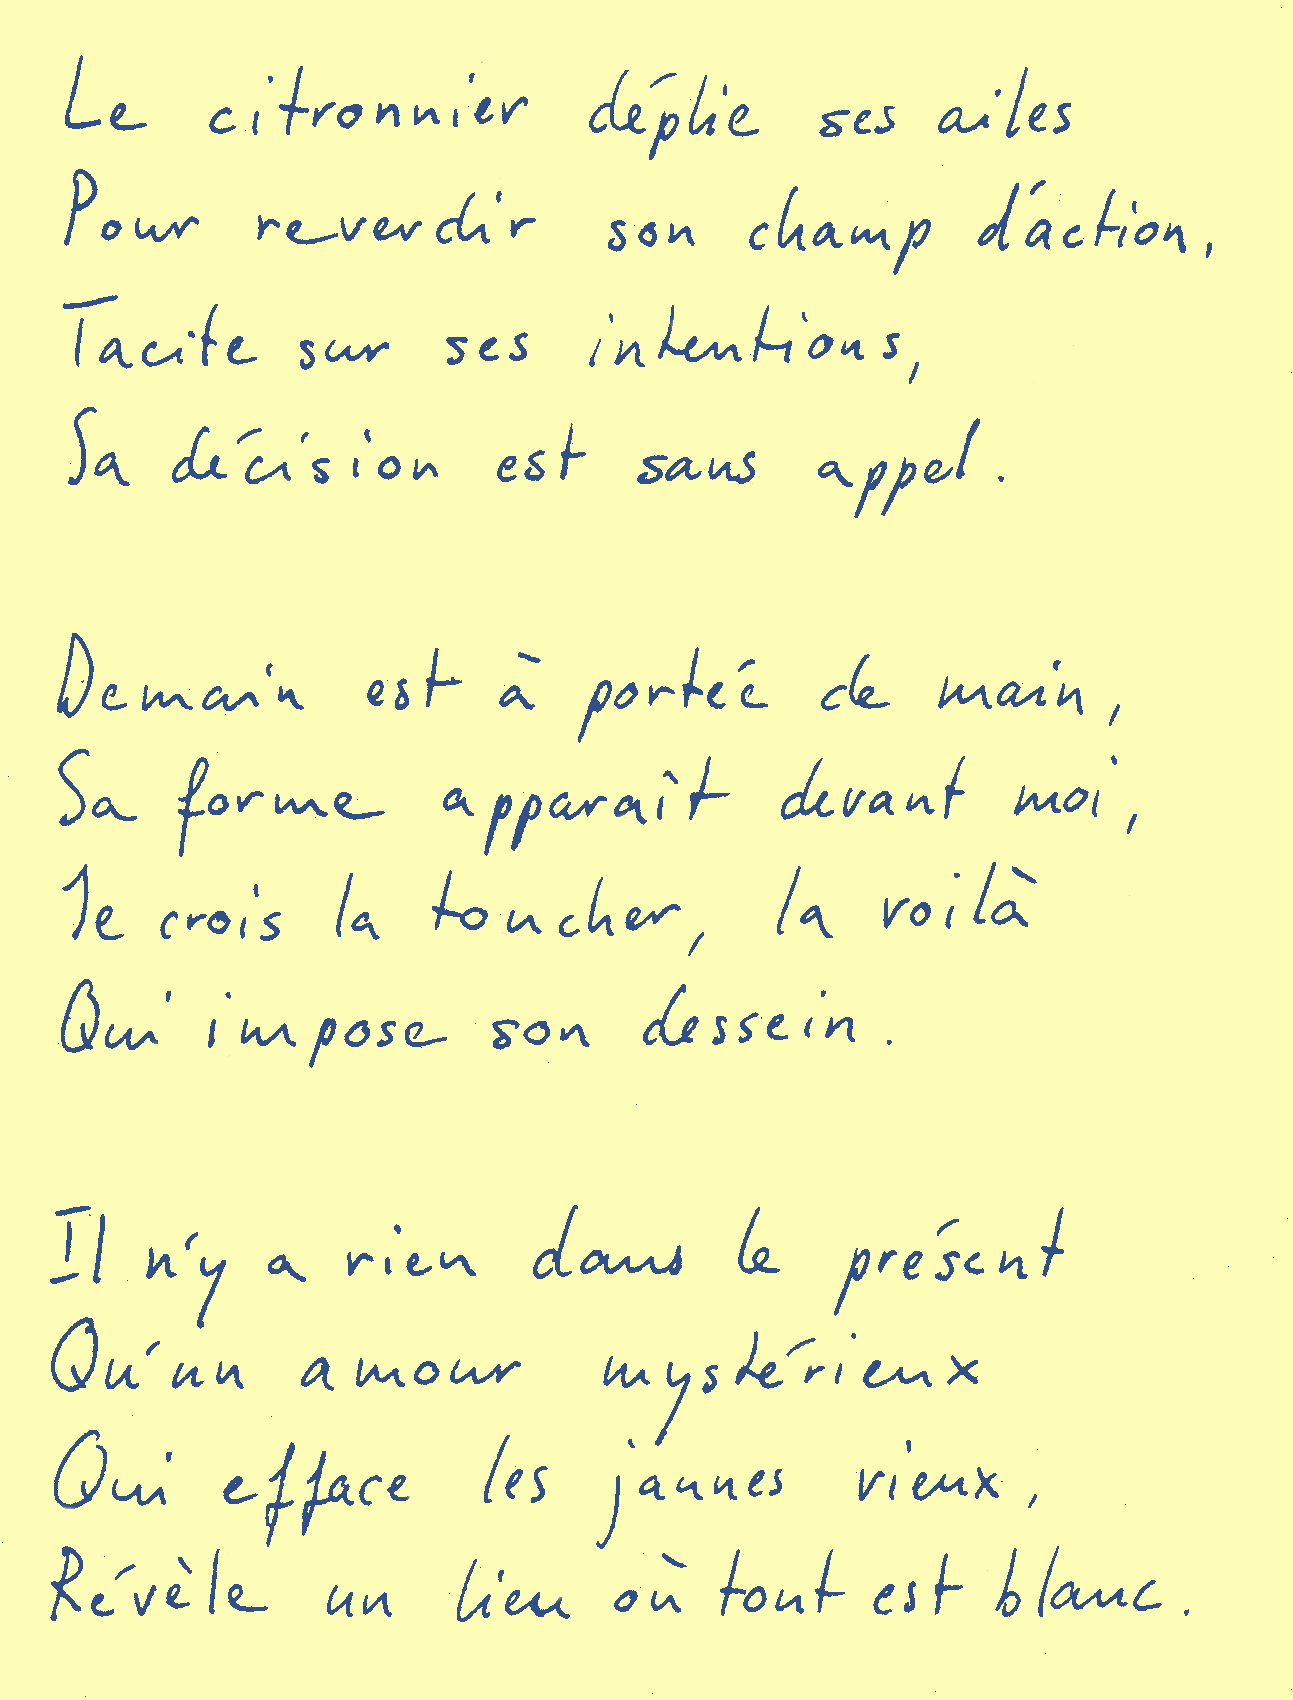 Le citronnier déplie ses ailes
Pour reverdir son champ d'action,
Tacite sur ses intentions,
Sa décision est sans appel.
Demain est à portée de main,
Sa forme apparaît devant moi,
Je crois la toucher, la voilà
Qui impose son dessein.
Il n'y a rien dans le présent
Qu'un amour mystérieux
Qui efface les jaunes vieux,
Révèle un lieu où tout est blanc.